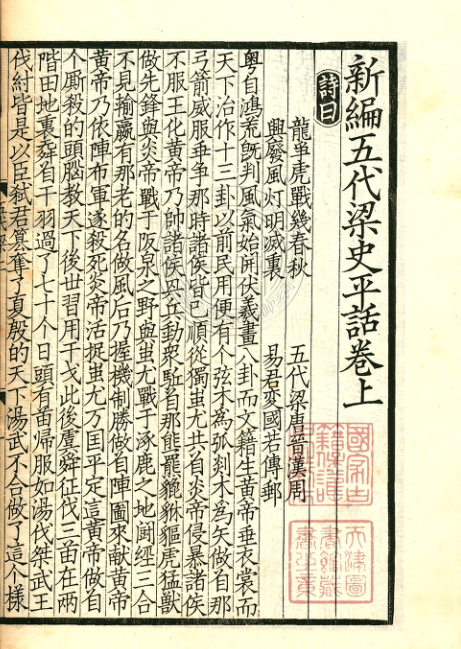 新編五代梁史平話卷上
詩曰
龍爭虎戰幾春秋 五代梁唐晉漢周
興廢風灯明滅裏 易君変國若傳郵
粵自鴻荒既判風氣始開伏羲畫八卦而文籍生黃帝垂衣裳而
天下治作十三卦以前民用便有个弦木為弧剡木為矢做自那
弓箭威服乖争那時諸侯皆已順從獨蚩尤共自炎帝侵暴諸侯
不服王化黃帝乃帥諸侯兴兵動衆駈自那熊羆貔貅貙虎猛獸
做先鋒與炎帝戰于阪泉之野與蚩尤戰于涿鹿之地閗經三合
不見揄贏有那老的名做風后乃握機制勝做自陣圖來献黃帝
黃帝乃依陣布軍遂殺死炎帝活捉蚩尤万国平定這黃帝做自
个厮殺的頭腦教天下後世習用干戈此後虞舜征伐三苗在兩
階田地裏舞自干羽過了七十个日頭有苗帰服如湯伐桀武王
伐紂皆是以臣弑君篡奪了夏殷的天下湯武不合做了這个樣
天津圖書館藏書之章